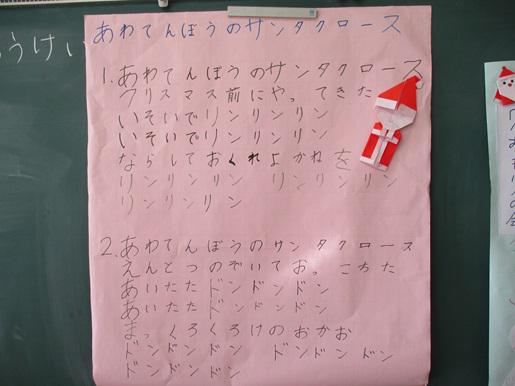 あわてんぼうのサンタクロース
1. あわてんぼうのサンタクロース
クリスマス前にやってきた
いそいでリンリンリン
いそいでリンリンリン
ならしておくれよかねを
リンリンリン リンリンリン
リンリンリン
2. あわてんぼうのサンタクロース
えんとつのぞいておっこちた
あいたたドンドンドン
あいたたドンドンドン
まっくろくろけのおかお
ドンドンドン ドンドンドン
ドンドンドン
うけい